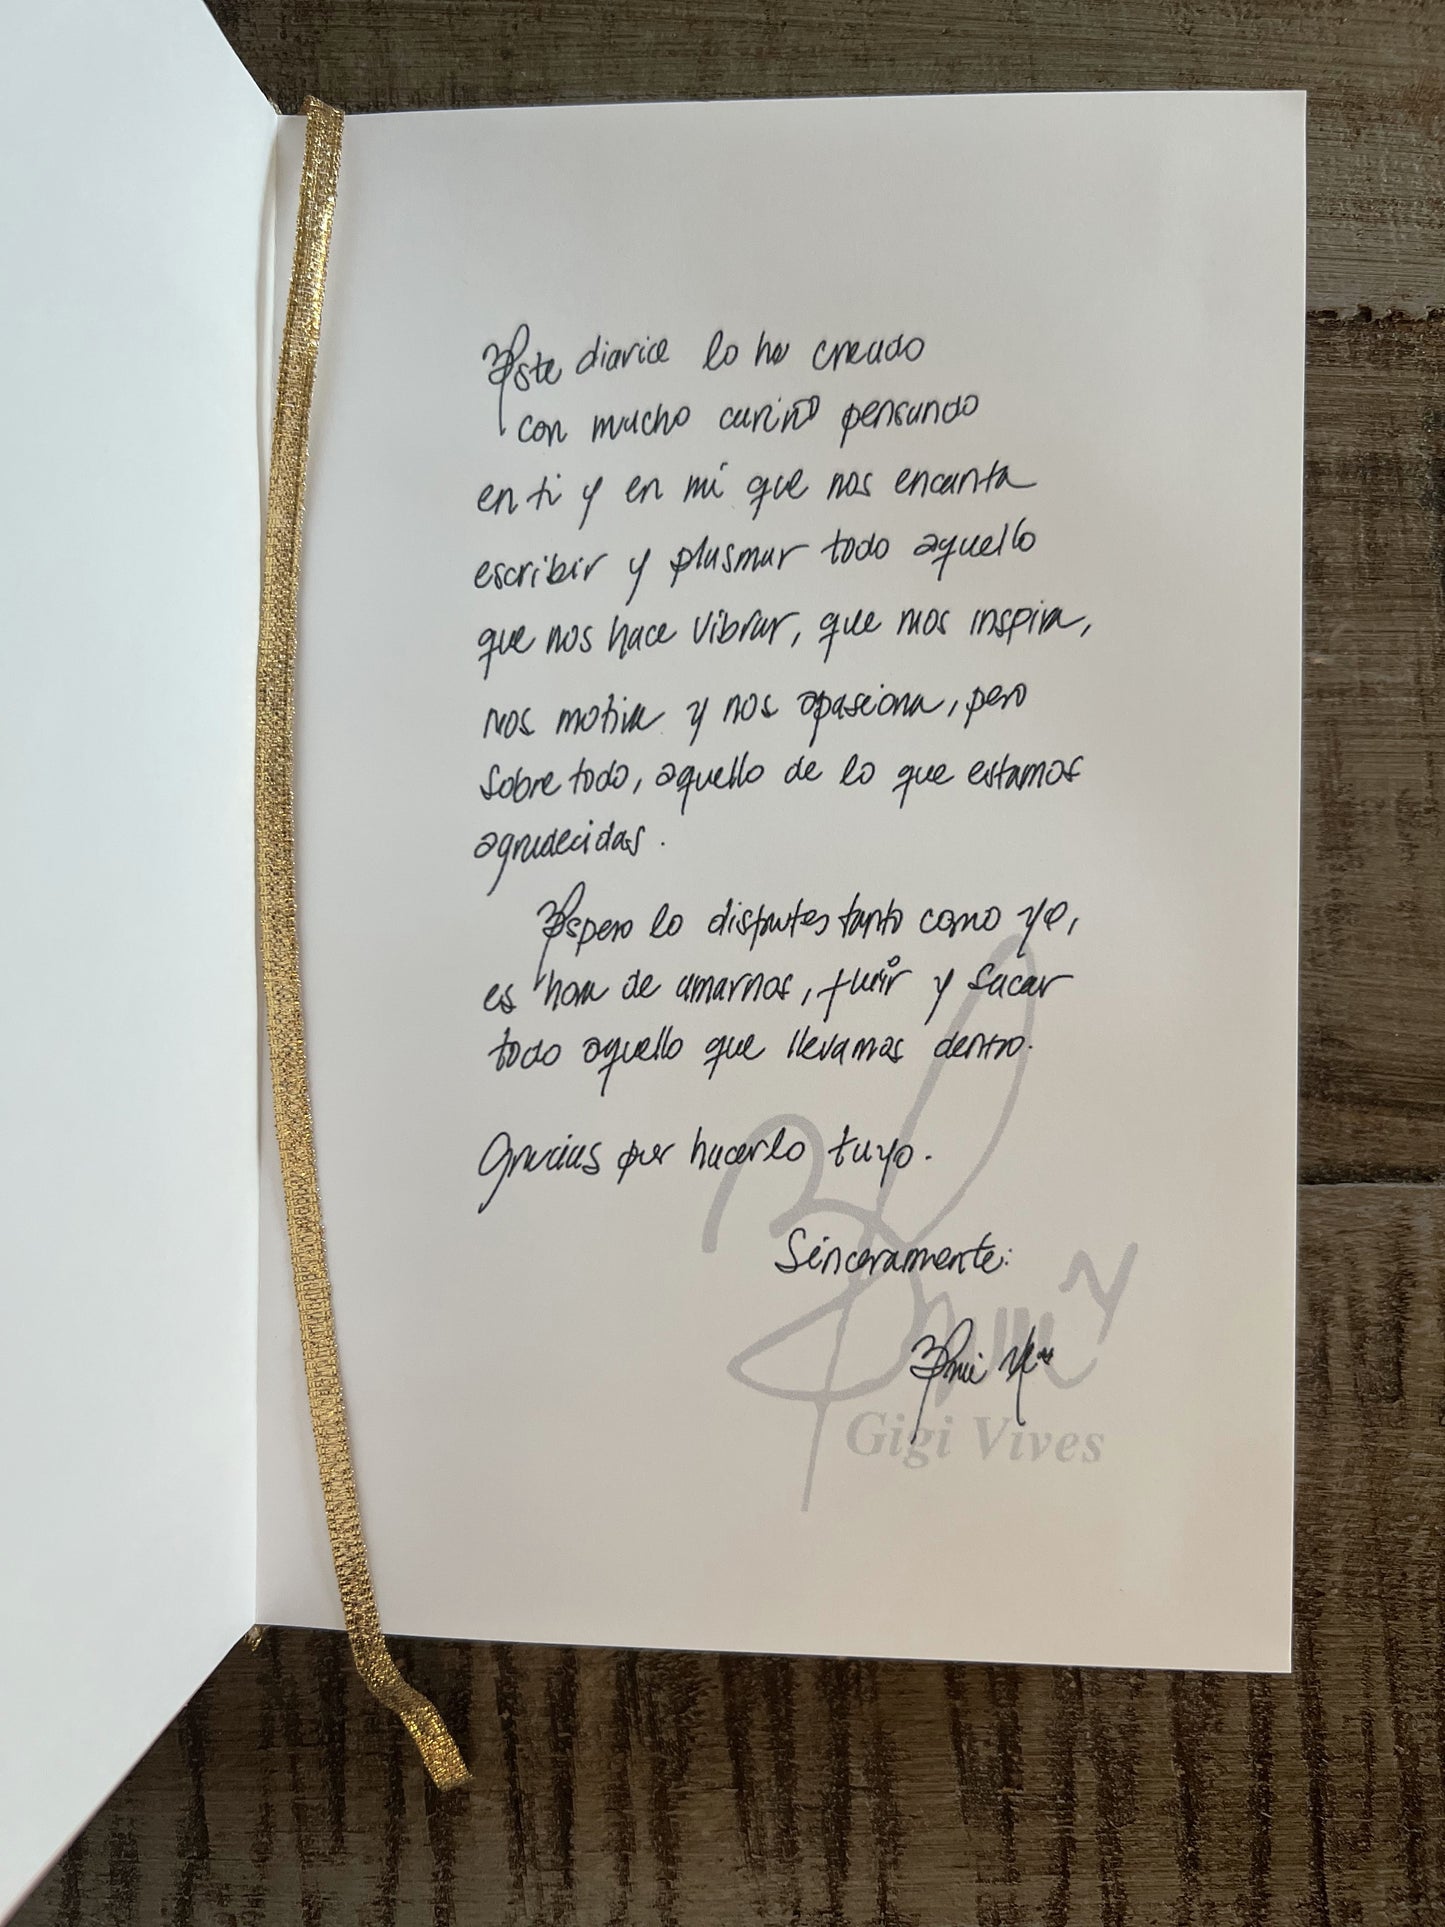 Este diario lo he creado
con mucho cariño pensando
en ti y en mí que nos encanta
escribir y plasmar todo aquello
que nos hace vibrar, que nos inspira,
nos motiva y nos apasiona, pero
sobre todo, aquello de lo que estamos
agradecidas.
Espero lo disfrutes tanto como yo,
es hora de amarnos, fluir y sacar
todo aquello que llevamos dentro.
Gracias por hacerlo tuyo.
Sinceramente:
Gigi Vives